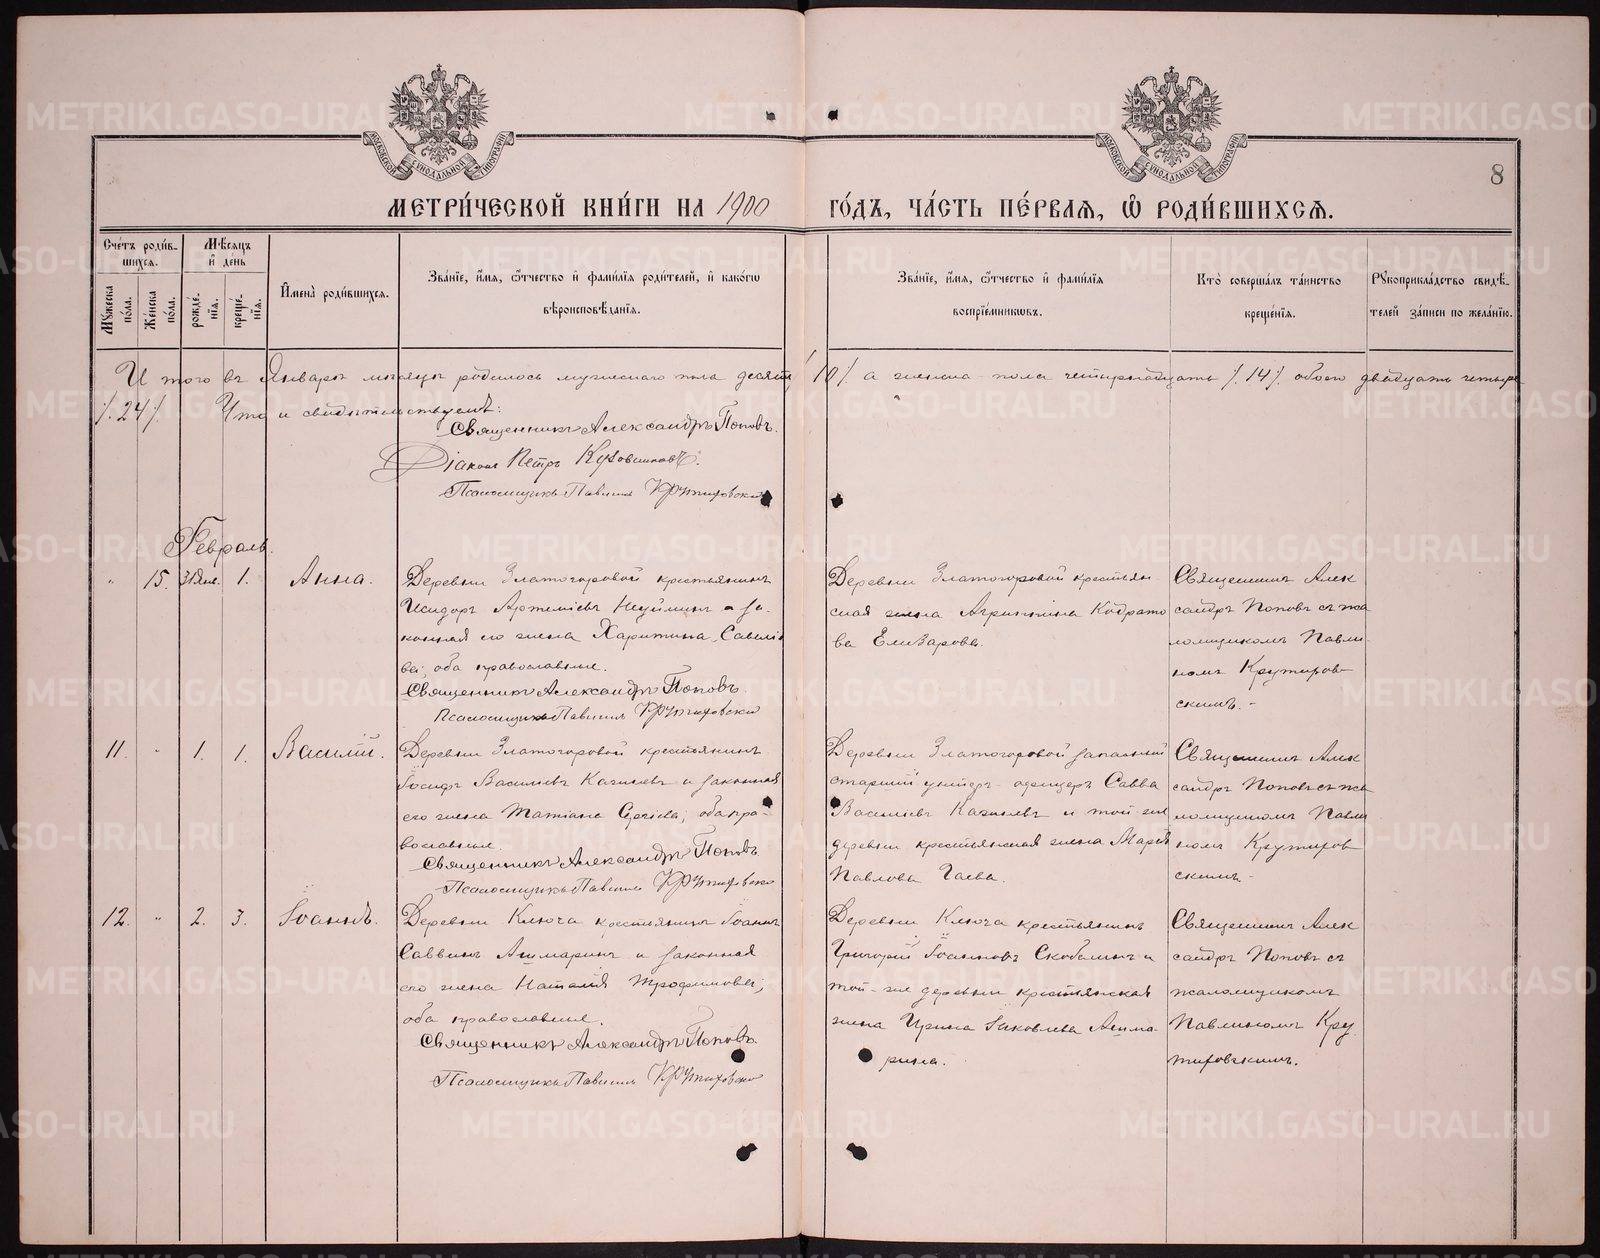 МЕТРИ́ЧЕСКОЙ КНИ́ГИ НА 1900 ГО́ДЪ, ЧА́СТЬ ПЕ́РВАЯ, Ѡ҆ РОДИ́ВШИХСЯ.
8
Сче́тъ роди́в-
шихся.
Мѣ́сяцъ
и҆ де́нь
Мꙋ́жеска по́ла.
Же́нска по́ла.
рожде́-нїя.
креще́-нїя.
И҆мена̀ роди́вшихся.
Зва́нїе, и҆́мя, ѻ҆́тчество и҆ фами́лїя роди́телей, и҆ како́гѡ
вѣроисповѣ́данїя.
Зва́нїе, и҆́мя, ѻ҆́тчество и҆ фами́лїя
воспрїе́мникѡвъ.
Кто̀ соверша́лъ та́инство
креще́нїя.
Рꙋкоприкла́дство свидѣ́-
телей за́писи по жела́нїю.
Итого въ Январѣ мѣсяцѣ родилось мужескаго пола десять /10/. а женска пола четырнадцать /.14/. обоего двадцать четыре
/.24/. Что и свидѣтельствуемъ:
Священникъ Александръ Поповъ.
Діаконъ Петръ
Псаломщикъ Павлинъ Крутиховскій
Февраль.
" 15. 31 Янв. 1. Анна.
Деревни Златогоровой крестьянинъ
Исидоръ Артеміевъ Неуйминъ и за-
конная его жена Харитина Савелье
ва; оба православные.
Священникъ Александръ Поповъ.
Псаломщикъ Павлинъ Крутиховскій
Деревни Златогоровой крестьян-
ская жена Агриппина Кодрато
ва Елизарова.
Священникъ Алек
сандръ Поповъ съ пса
ломщикомъ Павли-
номъ Крутихов-
скимъ.-
11. " 1. 1. Василій.
Деревни Златогоровой крестьянинъ
Іосифъ Васильевъ и законная
его жена Татіана Сергіева; оба пра-
вославные.
Священникъ Александръ Поповъ
Псаломщикъ Павлинъ Крутиховскій
Деревни Златогоровой запасный
старшій унтеръ-офицеръ Савва
Васильевъ и той же
деревни крестьянская жена Марія
Павлова Гаева.
Священникъ Алек
сандръ Поповъ съ пса
ломщикомъ Павли
номъ Крутихов
скимъ.-
12. " 2. 3. Іоаннъ.
Деревни Ключа крестьянинъ Іоаннъ
Саввинъ Ашмаринъ и законная
его жена Наталія Трофимова;
оба православные.
Священникъ Александръ Поповъ.
Псаломщикъ Павлинъ Крутиховскій
Деревни Ключа крестьянинъ
Григорій Іоанновъ Скобелинъ и
той-же деревни крестьянская
жена Ирина Іаковлева Ашма-
рина.
Священникъ Алек
сандръ Поповъ съ
псаломщикомъ
Павлиномъ Кру
тиховскимъ.
METRIKI.GASO-URAL.RU